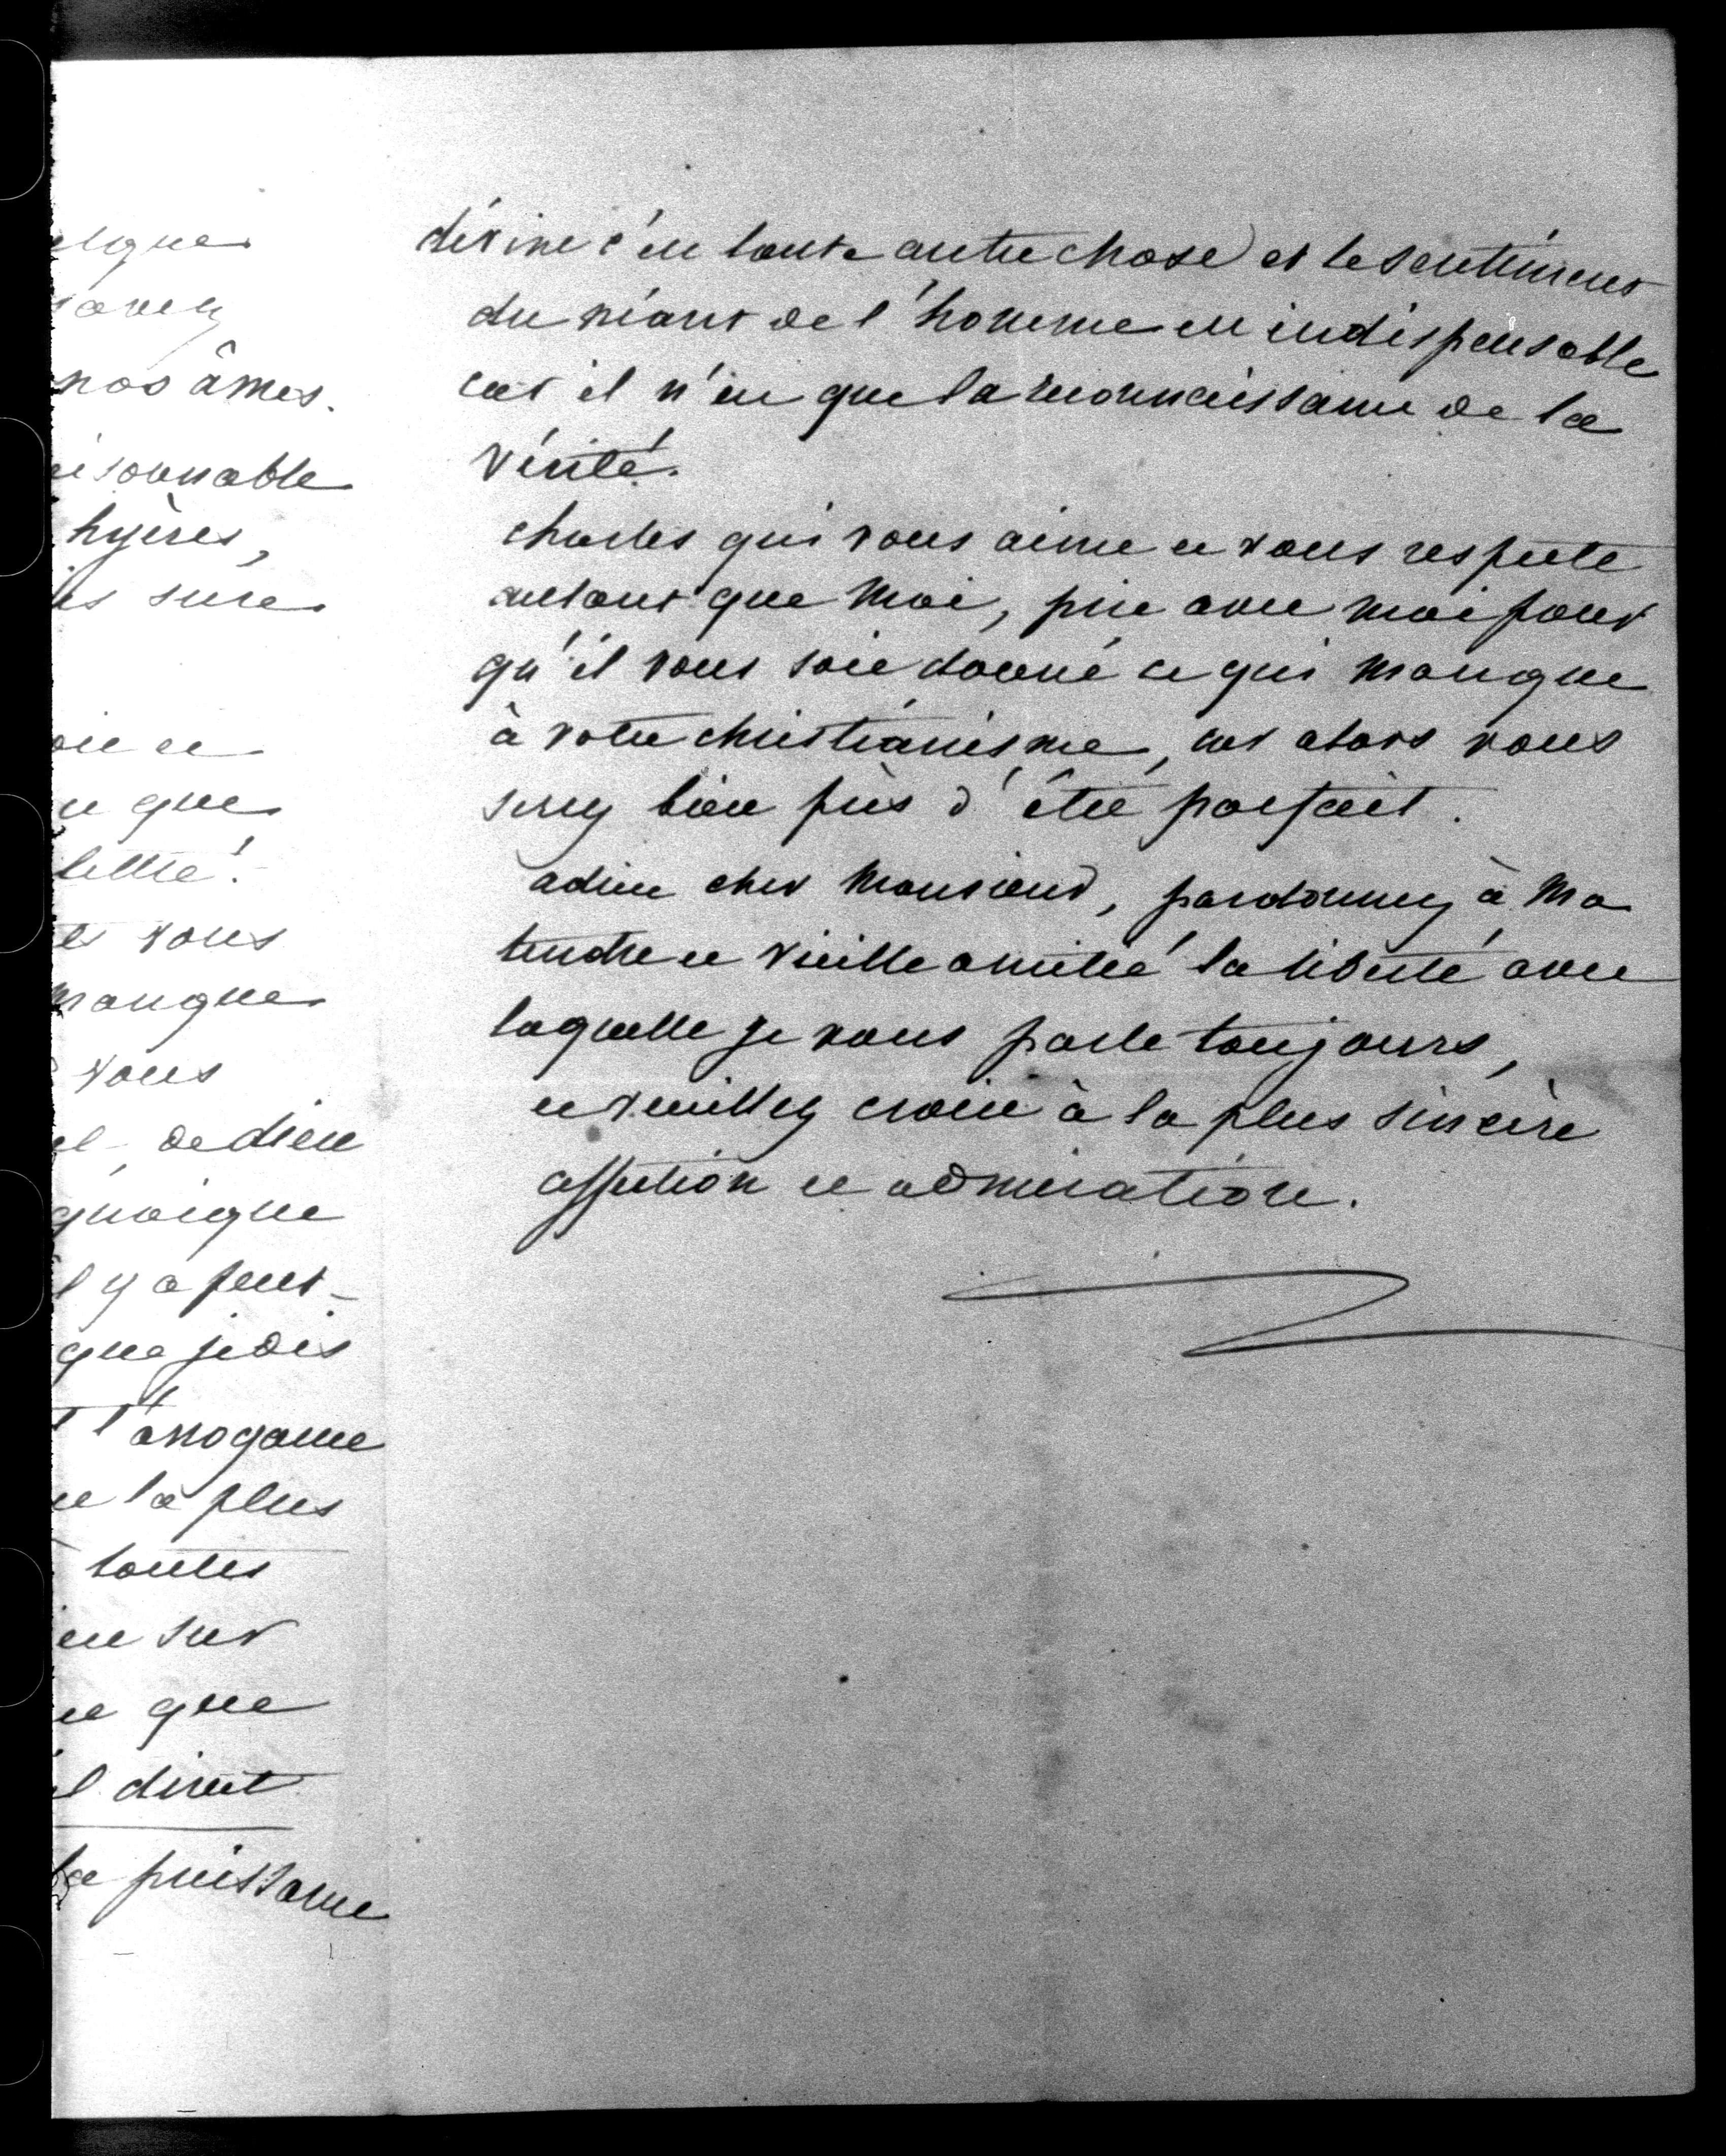 elque
savez
nos âmes.
aisonnable
hyères,
is sure
oir et
u que
lettre!
es vous
manque
vous
el de dieu
quoique
l y a peut-
que je dis
t l'arrogance
et la plus
toutes
en sur
ue que
el direct
la puissance
divine c'est toute autre chose et le sentiment
du néant de l'homme est indispensable
car il n'est que la reconnaissance de la
vérité.
charles qui vous aime et vous respecte
autant que moi, prie avec moi pour
qu'il vous soit donné ce qui manque
à votre christianisme, car alors vous
serez bien près d'être parfait.
adieu cher Monsieur, pardonnez à ma
tendre et vieille amitié la liberté avec
laquelle je vous parle toujours,
et veuillez croire à la plus sincère
affection et admiration.